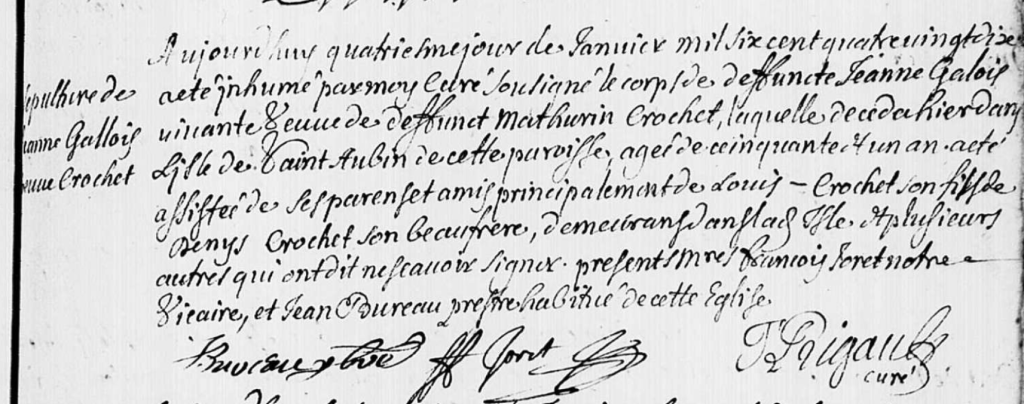 Sepulture de
Jeanne Gallois
veuve Crochet
Aujourdhuy quatriesme jour de Janvier mil six cent quatre vingt dixe
a eté inhumé par moy Curé sousigné le corps de deffuncte Jeanne Galois
vivante veuve de deffunct Mathurin Crochet, laquelle deceda hier dans
L'isle de Saint Aubin de cette paroisse, ageé de cinquante et un an. a eté
assisteé de ses parens et amis principalement de Louis - Crochet son fils de
Denys Crochet son beaufrere, demeurans dans lad Isle et plusieurs
autres qui ont dit ne scavoir signer. presents Mres francois Joret notre
Vicaire, et Jean Bureau prestre habitué de cette Eglise
Bureau ptre ff Joret T Rigault
curé